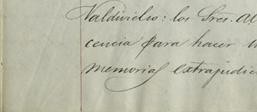 Valdivieso: los Sres. Al
cencia para hacer u
memorial extrajudic